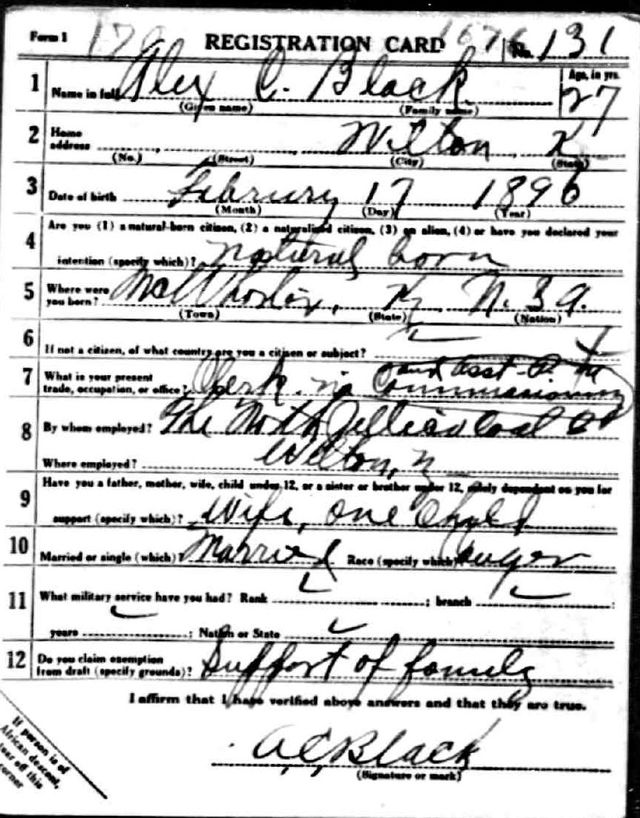 Form 1 170 REGISTRATION CARD 1676 No. 131
1 Name in full Alex C. Black Age, in yrs. 27
(Given name) (Family name)
2 Home address Wilton Ky
(No.) (Street) (City) (State)
3 Date of birth Februrry 17 1896
(Month) (Day) (Year)
4 Are you (1) a natural-born citizen, (2) a naturalized citizen, (3) an alien, (4) or have you declared your
intention (specify which)? natural born
5 Where were you born? McWhorter, Ky N. S a.
(Town) (State) (Nation)
6 If not a citizen, of what country are you a citizen or subject?
and asst.
7 What is your present trade, occupation, or office? Clerk in Commissary
8 By whom employed? The North Jellico Coal Co
Where employed? Wilton, Ky
9 Have you a father, mother, wife, child under 12, or a sister or brother under 12, solely dependent on you for
support (specify which)? Wife, one Child
10 Married or single (which)? Married Race (specify which)?
11 What military service have you had? Rank ; branch ;
years ; Nation or State
12 Do you claim exemption from draft (specify grounds)? Support of family
I affirm that I have verified above answers and that they are true.
A C Black
(Signature or mark)
If person is of
African descent,
tear off this
corner